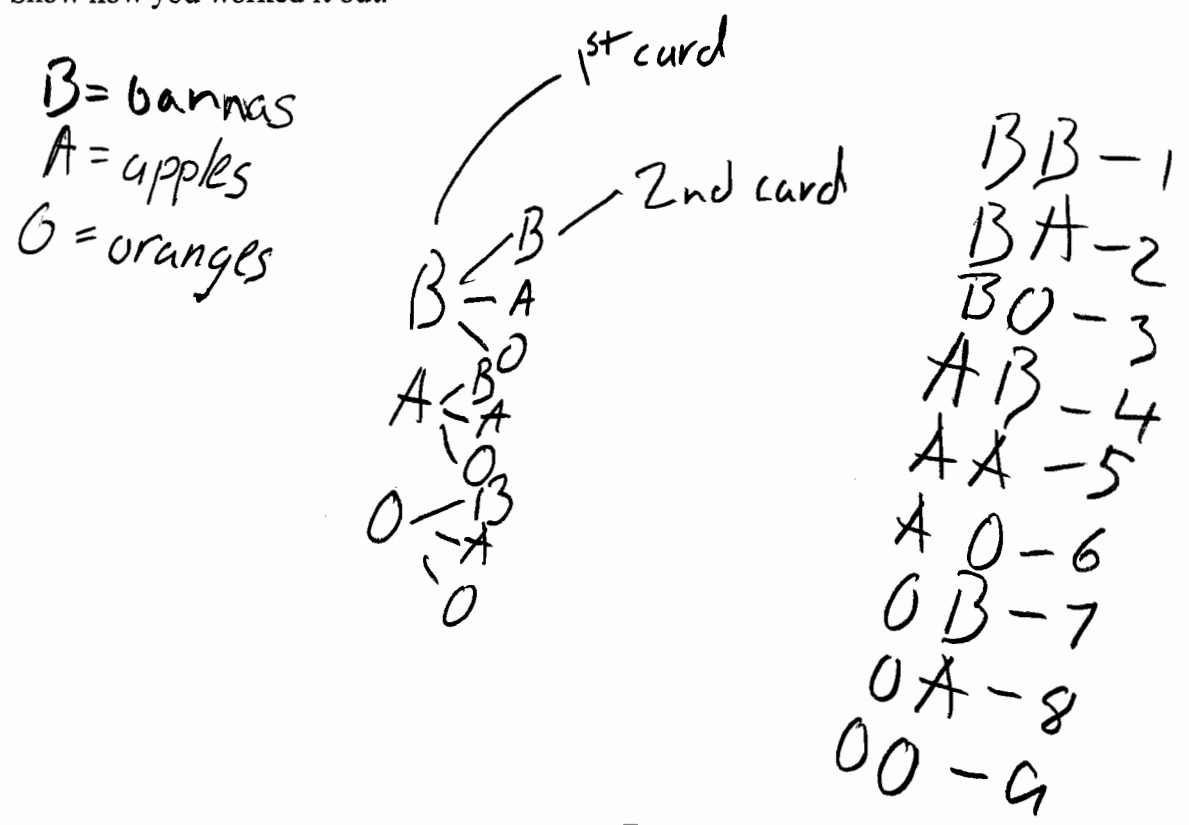 Show how you worked it out.
B = bannas
A = apples
O = oranges
1st card
2nd card
B
B
A
O
A
B
A
O
O
B
A
O
BB - 1
BA - 2
BO - 3
AB - 4
AA - 5
AO - 6
OB - 7
OA - 8
OO - 9